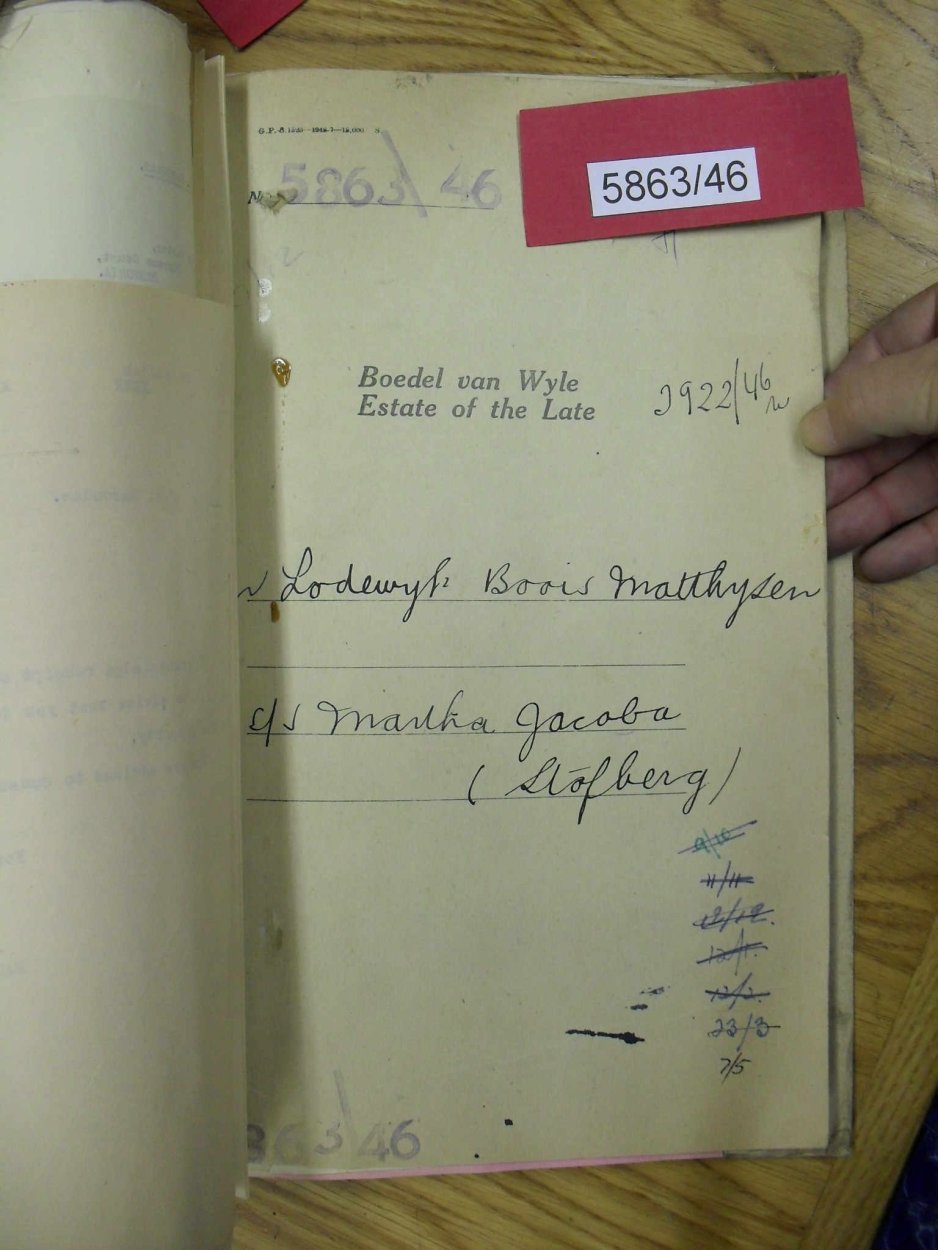 G.P.-S.
5863/46
No. 5863/46
Boedel van Wyle
Estate of the Late
3922/46
Lodewyk Boois Matthysen
s/s Martha Jacoba
(Stofberg)
9/10
11/11
12/12.
12/1.
12/2.
23/3
7/5
863/46